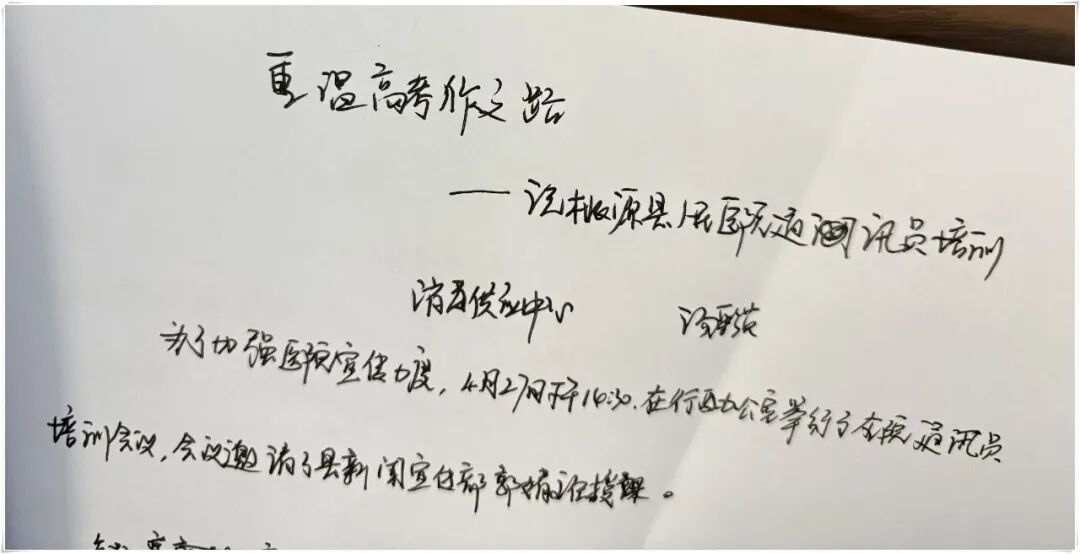 重温高考作文路
——记桃源县人民医院通讯员培训
消毒供应中心
为了加强医院宣传力度，4月27日下午14:30.在行政办公室举行了全院通讯员
培训会议，会议邀请了县新闻宣传部郭婧主任授课。